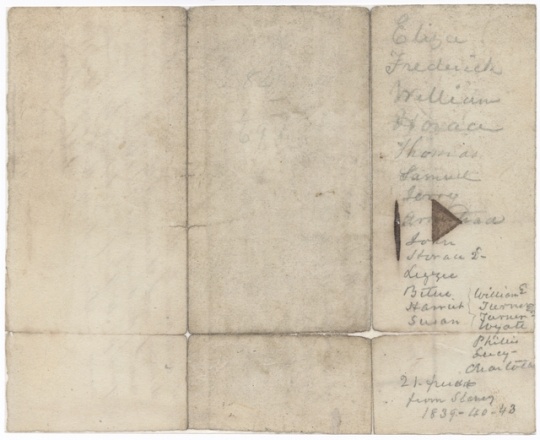 Eliza
Frederick
William
Horace
Thomas
Samuel
Jerry
John
Horace E-
Lizzie
Betsie William E
Harriet Turner
Susan Turner
Wyatt
Phillis
Lucy-
Charlotte
21-
from
1839-40-43